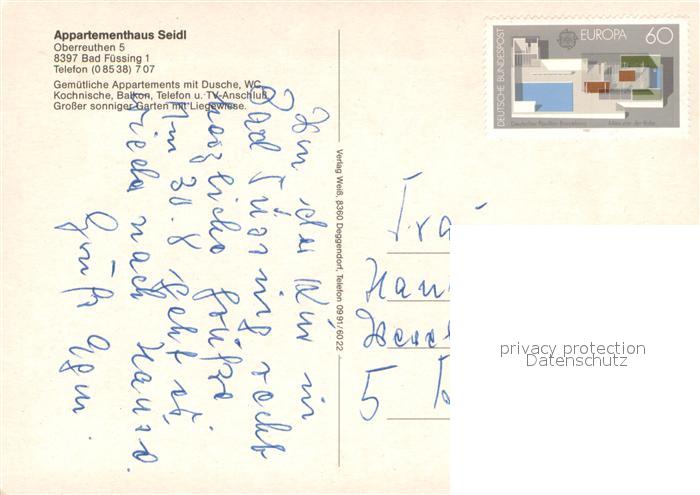 Appartementhaus Seidl
Oberreuthen 5
8397 Bad Füssing 1
Telefon (0 85 38) 7 07
Gemütliche Appartements mit Dusche, WC,
Kochnische, Balkon, Telefon u. TV-Anschluß.
Großer sonniger Garten mit Liegewiese.
Von der Kur in
Bad Füssing recht
herzliche Grüße
Am 30.8 geht es
wieder nach Hause.
Gruß
Verlag Weiß, 8360 Deggendorf, Telefon 09 91/60 22
DEUTSCHE BUNDESPOST
EUROPA 60
Deutscher Pavillon Barcelona Mies van der Rohe
5
privacy protection
Datenschutz